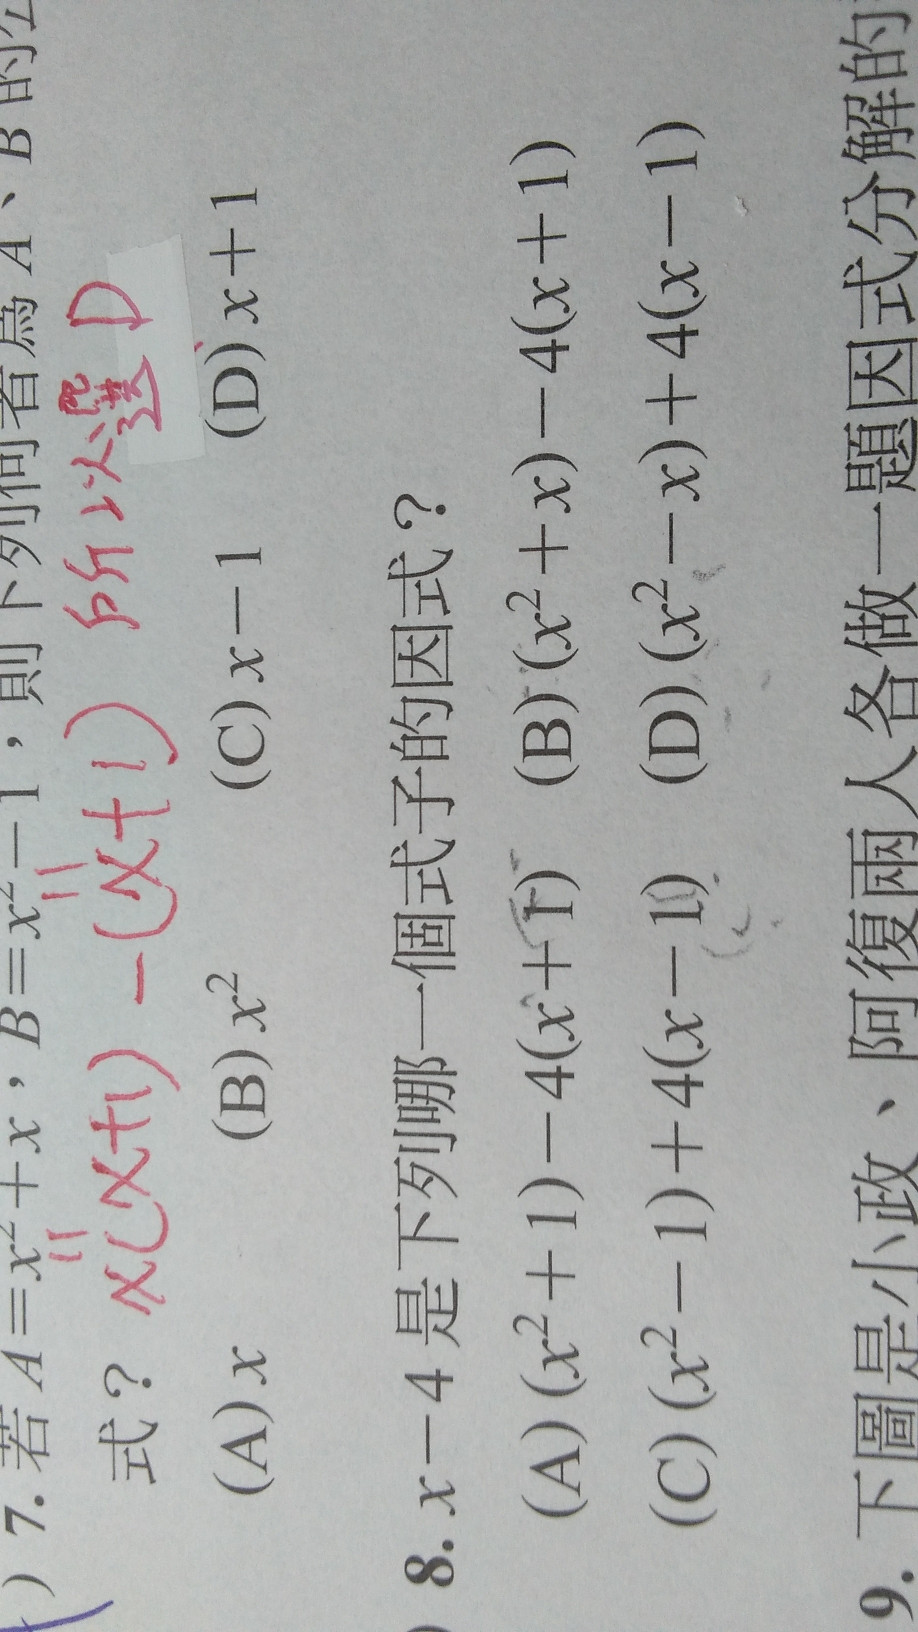 ) 7. 若 A=x²+x，B=x²-1，則下列何者為 A、B 的公
式？ x(x+1) -(x+1) 所以選 D
(A) x (B) x² (C) x-1 (D) x+1
) 8. x-4 是下列哪一個式子的因式？
(A) (x²+1)-4(x+1) (B) (x²+x)-4(x+1)
(C) (x²-1)+4(x-1) (D) (x²-x)+4(x-1)
9. 下圖是小政、阿復兩人各做一題因式分解的